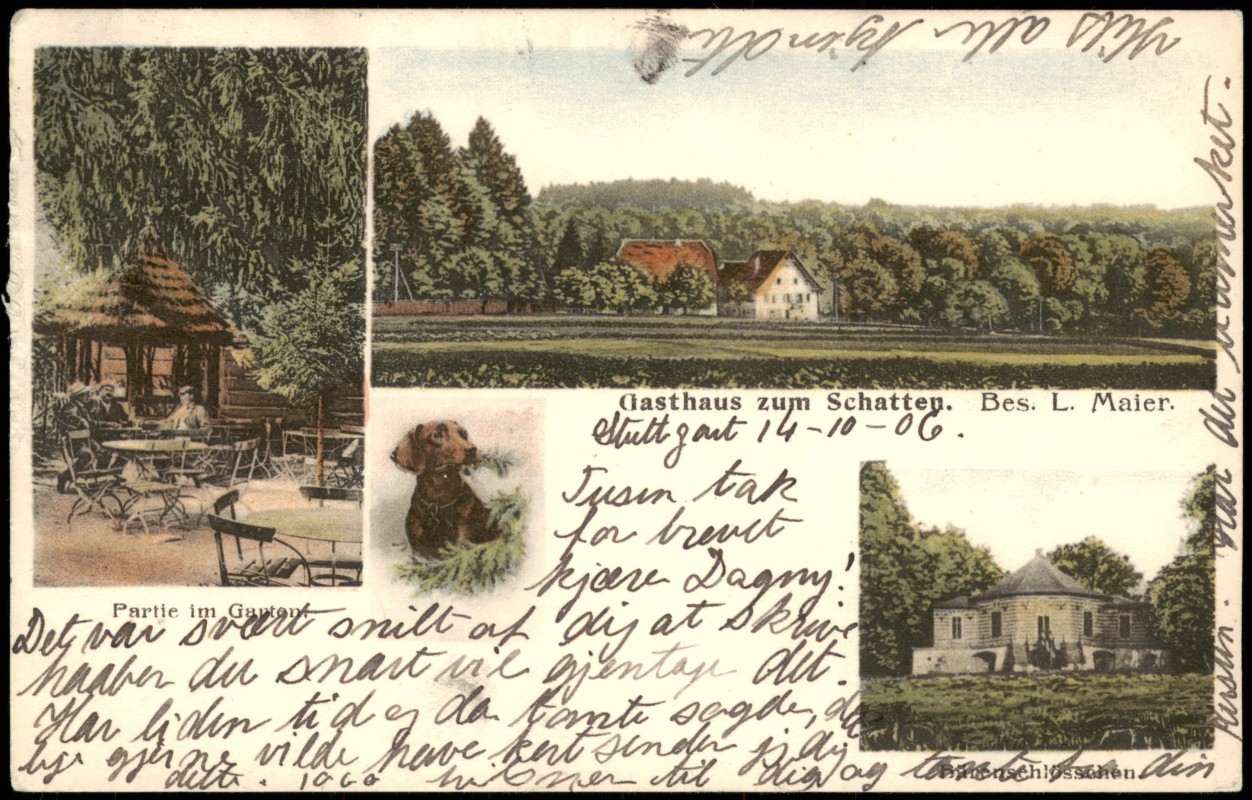 Hils alle kjendte
Gasthaus zum Schatten. Bes. L. Maier.
Stuttgart 14-10-06.
Tusen tak
for brevet
kjære Dagny!
Partie im Garten.
Det var svært snilt af dig at skrive
haaber du snart vil gjentage det.
Har liden tid og da tante sagde, du
lige gjerne vilde have kort sender jeg dig
dette. 1000 hilsner til dig og tante fra din
Bärenschlösschen.
Kerstin. Har du